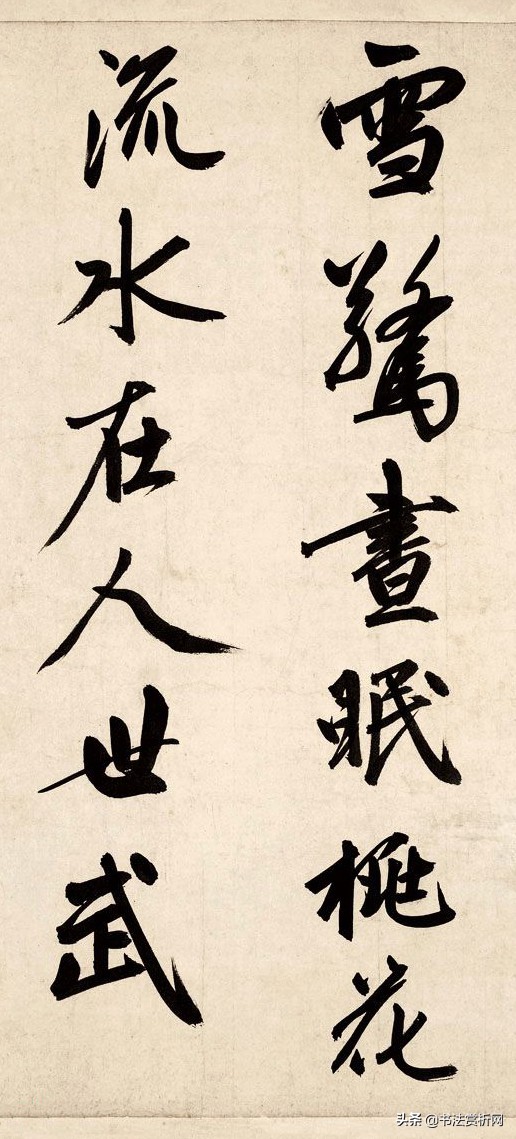 雪驚晝眠桃花
流水在人世武
头条 @书法赏析网